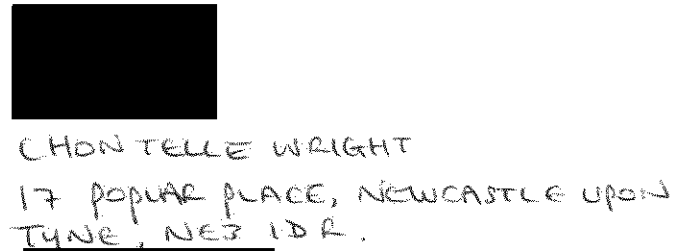 CHONTELLE WRIGHT
17 POPLAR PLACE, NEWCASTLE UPON
TYNE, NE3 1DR.